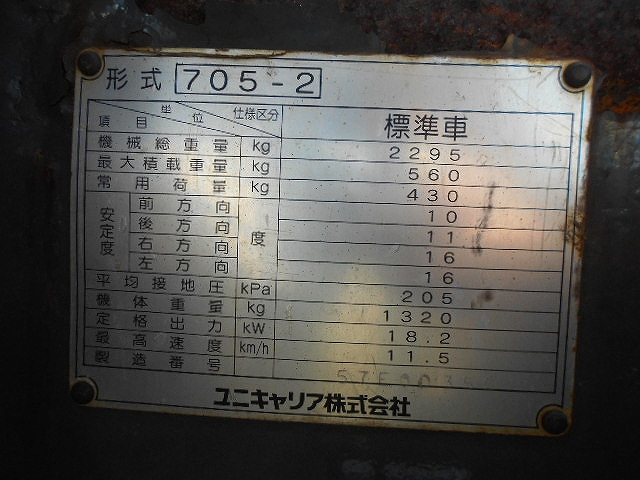 形式 705-2
項目 単位 仕様区分 標準車
機械総重量 kg 2295
最大積載重量 kg 560
常用荷量 kg 430
安定度 前方向 度 10
後方向 11
右方向 16
左方向 16
平均接地圧 kPa 205
機体重量 kg 1320
定格出力 kW 18.2
最高速度 km/h 11.5
製造番号
ユニキャリア株式会社